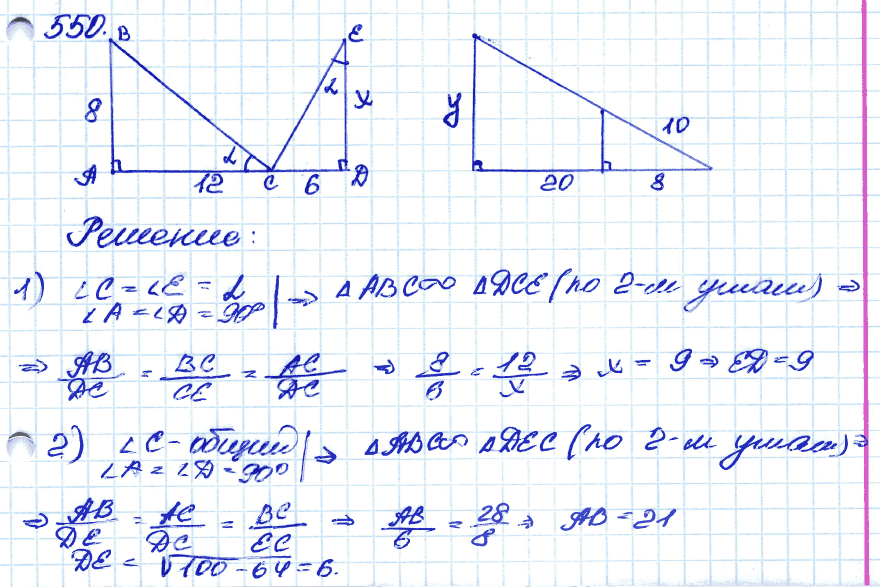 550.
B E
8 α α x y 10
A 12 C 6 D 20 8
Решение:
1) ∠C = ∠E = α | ⇒ △ABC ∞ △DCE (по 2-м углам) ⇒
∠A = ∠D = 90°
⇒ AB/DC = BC/CE = AC/DC ⇒ 8/6 = 12/x ⇒ x = 9 ⇒ ED = 9
2) ∠C - общий | ⇒ △ABC ∞ △DEC (по 2-м углам) ⇒
∠A = ∠D = 90°
⇒ AB/DE = AC/DC = BC/EC ⇒ AB/6 = 28/8 ⇒ AB = 21
DE = √100-64 = 6.